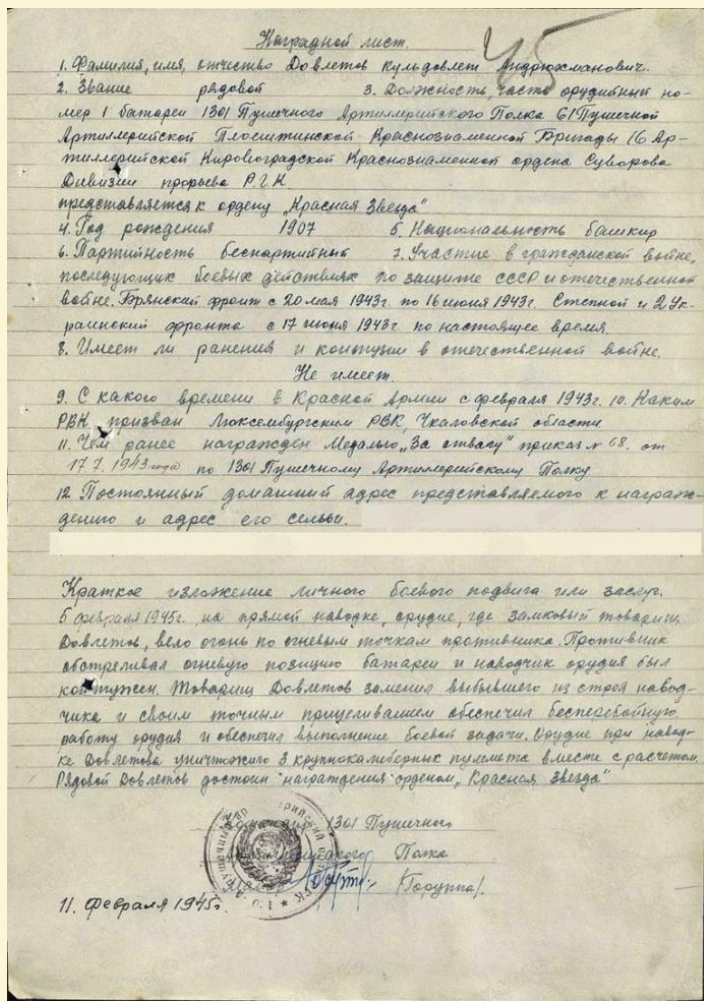 45
Наградной лист.
1. Фамилия, имя, отчество Довлетов Кульдовлет Андрюхманович.
2. Звание рядовой 3. Должность, часть орудийный но-
мер 1 батареи 1301 Пушечного Артиллерийского Полка 61 Пушечной
Артиллерийской Краснознаменной Бригады 16 Ар-
тиллерийской Кировоградской Краснознаменной ордена Суворова
Дивизии прорыва Р.Г.К
представляется к ордену „Красная Звезда"
4. Год рождения 1907 5. Национальность башкир
6. Партийность беспартийный 7. Участие в гражданской войне,
последующих боевых действиях по защите СССР и отечественной
войне. Брянский фронт с 20 мая 1943г. по 16 июня 1943г. Степной и 2 Ук-
раинский фронта с 17 июня 1943г. по настоящее время
8. Имеет ли ранения и контузии в отечественной войне.
Не имеет.
9. С какого времени в Красной Армии с февраля 1943г. 10. Каким
РВК призван Люксембургским РВК, Чкаловской области
11. Чем ранее награжден Медалью „За отвагу" приказ № 68. от
17.7.1943 года по 1301 Пушечному Артиллерийскому Полку
12 Постоянный домашний адрес представляемого к награж-
дению и адрес его семьи.
Краткое изложение личного боевого подвига или заслуг.
5 февраля 1945г. на прямой наводке, орудие, где замковый товарищ
Довлетов, вело огонь по огневым точкам противника. Противник
обстреливал огневую позицию батареи и наводчик орудия был
контужен. Товарищ Довлетов заменил выбывшего из строя навод-
чика и своим точным прицеливанием обеспечил бесперебойную
работу орудия и обеспечил выполнение боевой задачи. Орудие при навод-
ке Довлетова уничтожило 3 крупнокалиберных пулемета вместе с расчетом.
Рядовой Довлетов достоин награждения орденом „Красная Звезда"
Командир 1301 Пушечного
Артиллерийского Полка
/Горуппа/.
11. февраля 1945г.